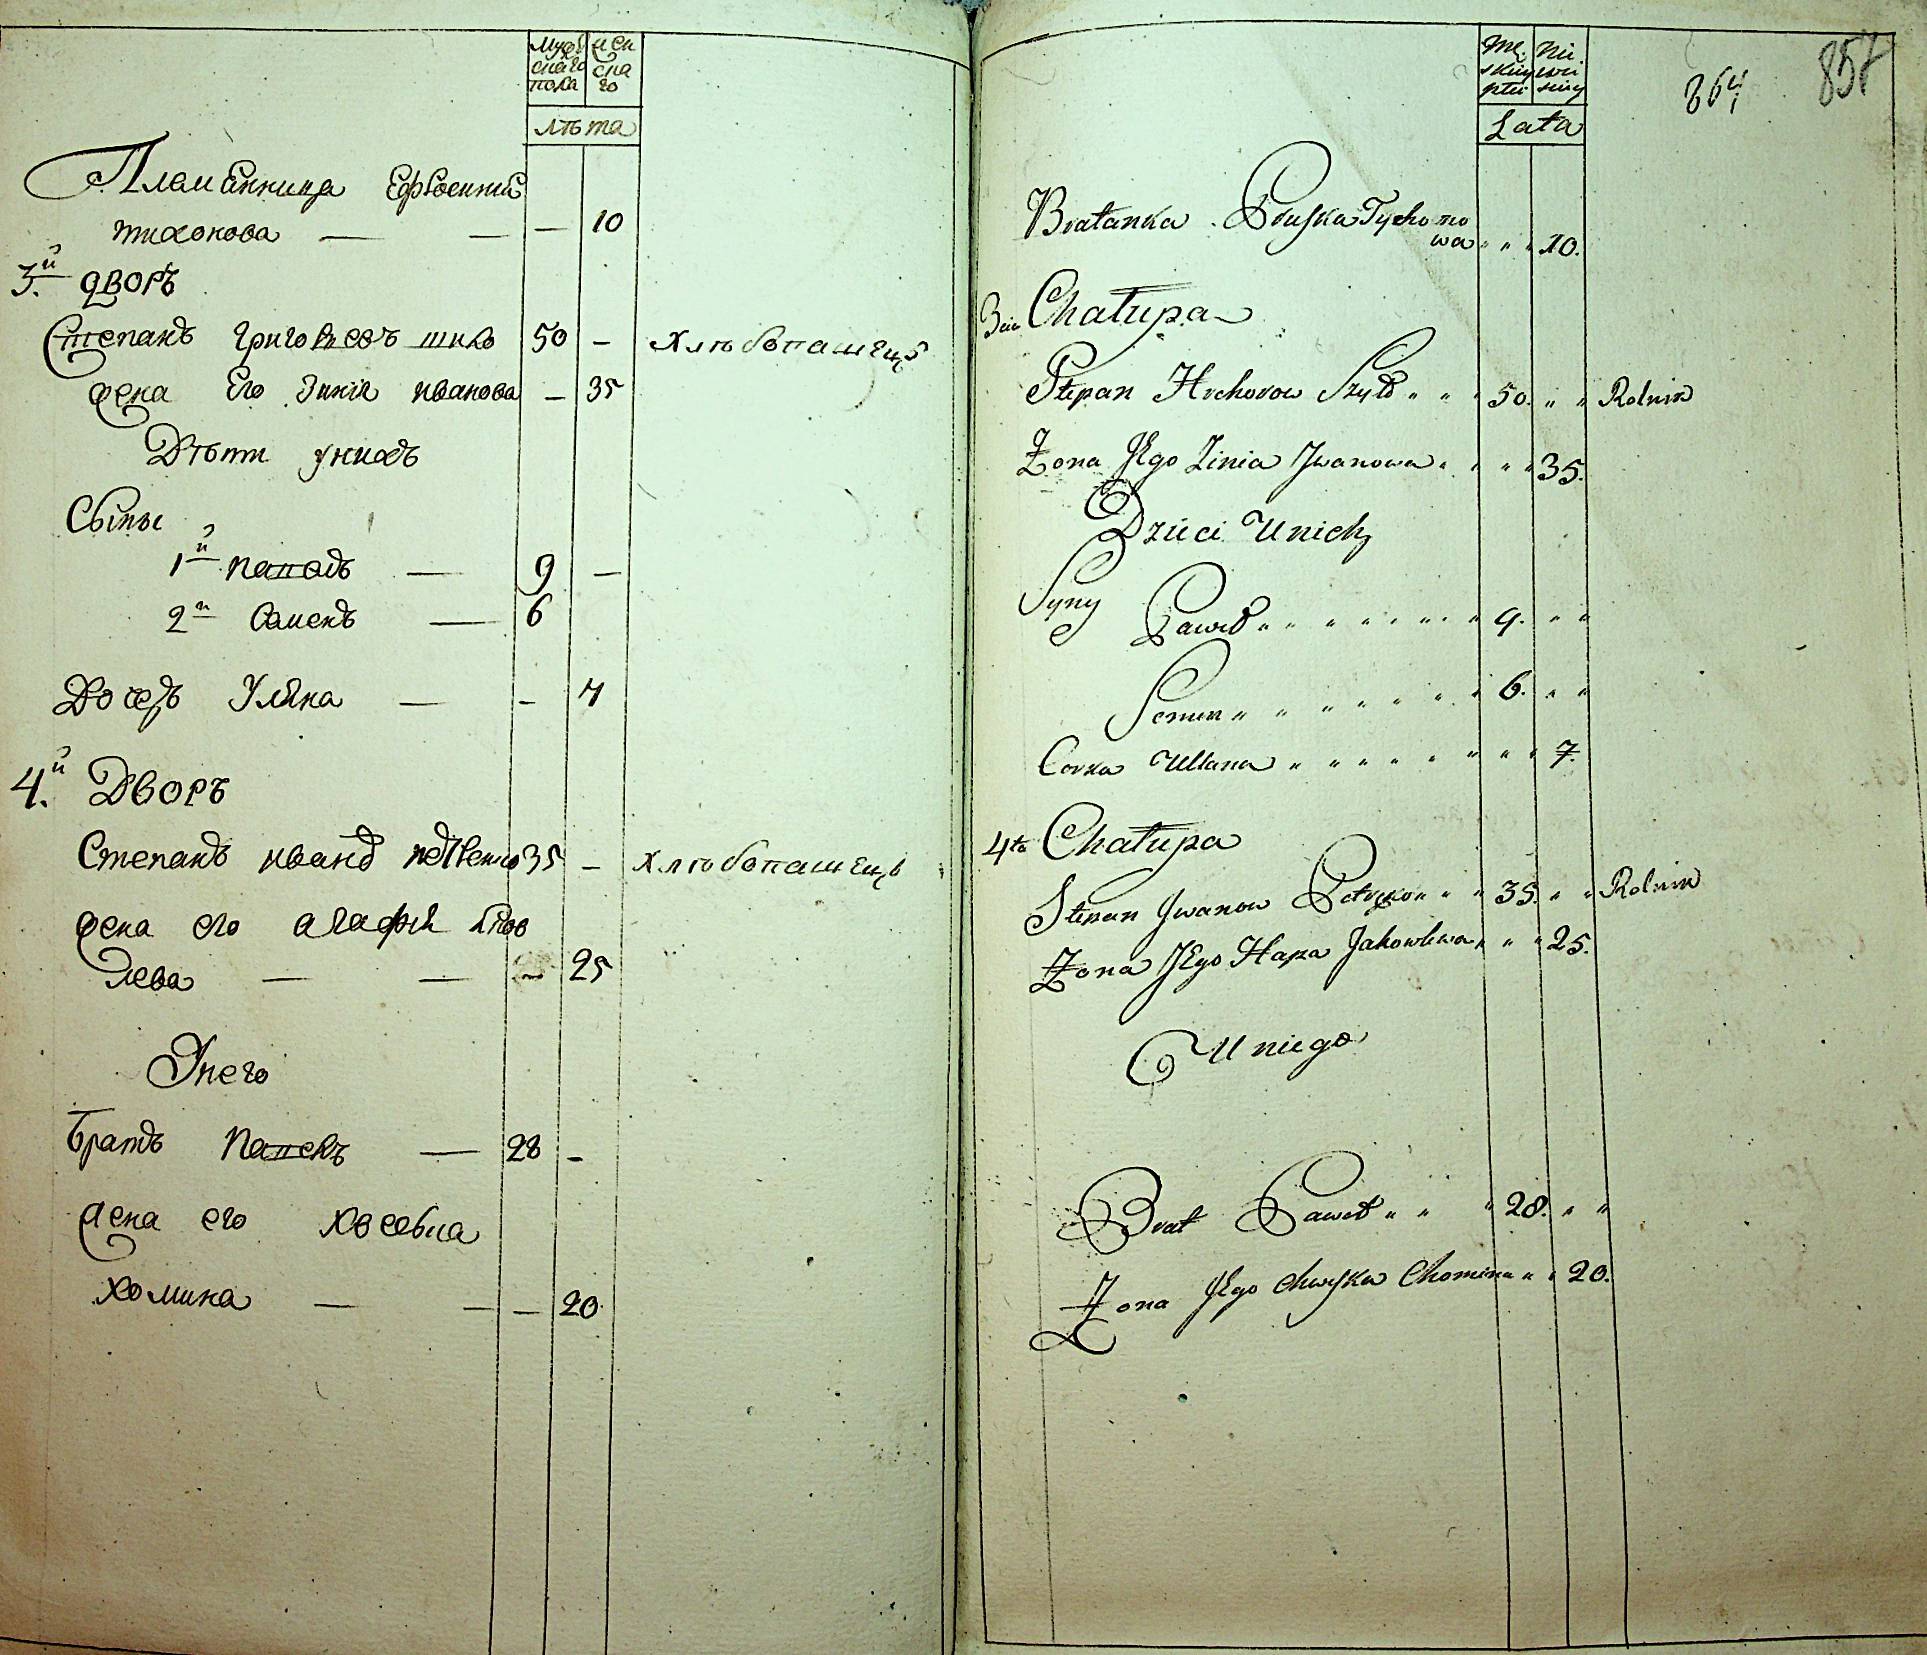 мужскаго пола
женскаго
лѣта
Племянница Ефросиния
тихонова — — — 10
3й дворъ
Степанъ григориевъ шило 50 — хлѣбопашецъ
жена Его Зинія иванова — 35
Дѣти у нихъ
Сыны
1й павелъ — 9 —
2й Семенъ — 6
Дочерь Уляна — - 7
4й Дворъ
Степанъ иванъ петренко 35 — хлѣбопашецъ
жена его агафия яков
лева — — — 25
Унего
братъ павелъ — 28 -
жена его
хомина — — — 20
męskiey płci
niewieściey
Lata
864
857
Bratanka Pruśka Tychono
wa " " " 10.
3cia Chałupa
Stepan Hrehorow Szyło " " " 50. " " Rolnik
Żona Jego Zinia Jwanowa " " " 35.
Dzieci U nich
Syny
Paweł " " " " " " " 9. " "
Semen " " " " " " 6. " "
Corka Ullana " " " " " " " " 7.
4ta Chałupa
Stepan Jwanow Petrenko " " " 35. " " Rolnik
Żona Jego Hapa Jakowlewa " " " 25.
U niego
Brat Paweł " " " 28. " "
Żona Jego Chwyśka Chomina " " 20.